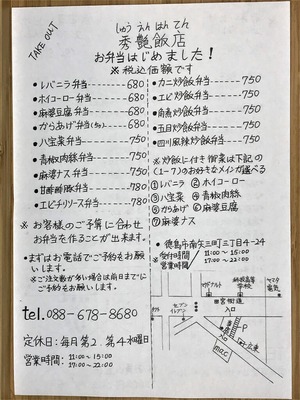 TAKE OUT
しゅう えん はん てん
秀艶飯店
お弁当はじめました!
※税込価額です
●レバニラ弁当--------680
●ホイコーロー弁当------680
●麻婆豆腐弁当--------680
●からあげ弁当(5ヶ)-----680
●八宝菜弁当---------750
●青椒肉絲弁当--------750
●麻婆ナス弁当--------750
●甘酢酢豚弁当--------780
●エビチリソース弁当-----780
※お客様のご予算に合わせ
お弁当を作ることが出来ます。
●まずはお電話でご予約をお願い
します。
※ご注文数が多い場合は前日までに
ご予約をお願いします。
tel. 088-678-8680
定休日:毎月第2.第4水曜日
営業時間: 11:00~15:00
17:00~22:00
●カニ炒飯弁当------750
●エビ炒飯弁当------750
●五目炒飯弁当------750
●四川風辣炒飯弁当----750
※炒飯に付き御菜は下記の
(1~7)のお好きなメイン選べる
①レバニラ ②ホイコーロー
③八宝菜 ④青椒肉絲
⑤からあげ ⑥麻婆豆腐
⑦麻婆ナス
●徳島市南矢三町三丁目4-24
受付時間 11:00~15:00
営業時間 17:00~22:00
マクドナルド
城西高等
学校
ヤマダ
電気
セブン
イレブン
入口
P
mac